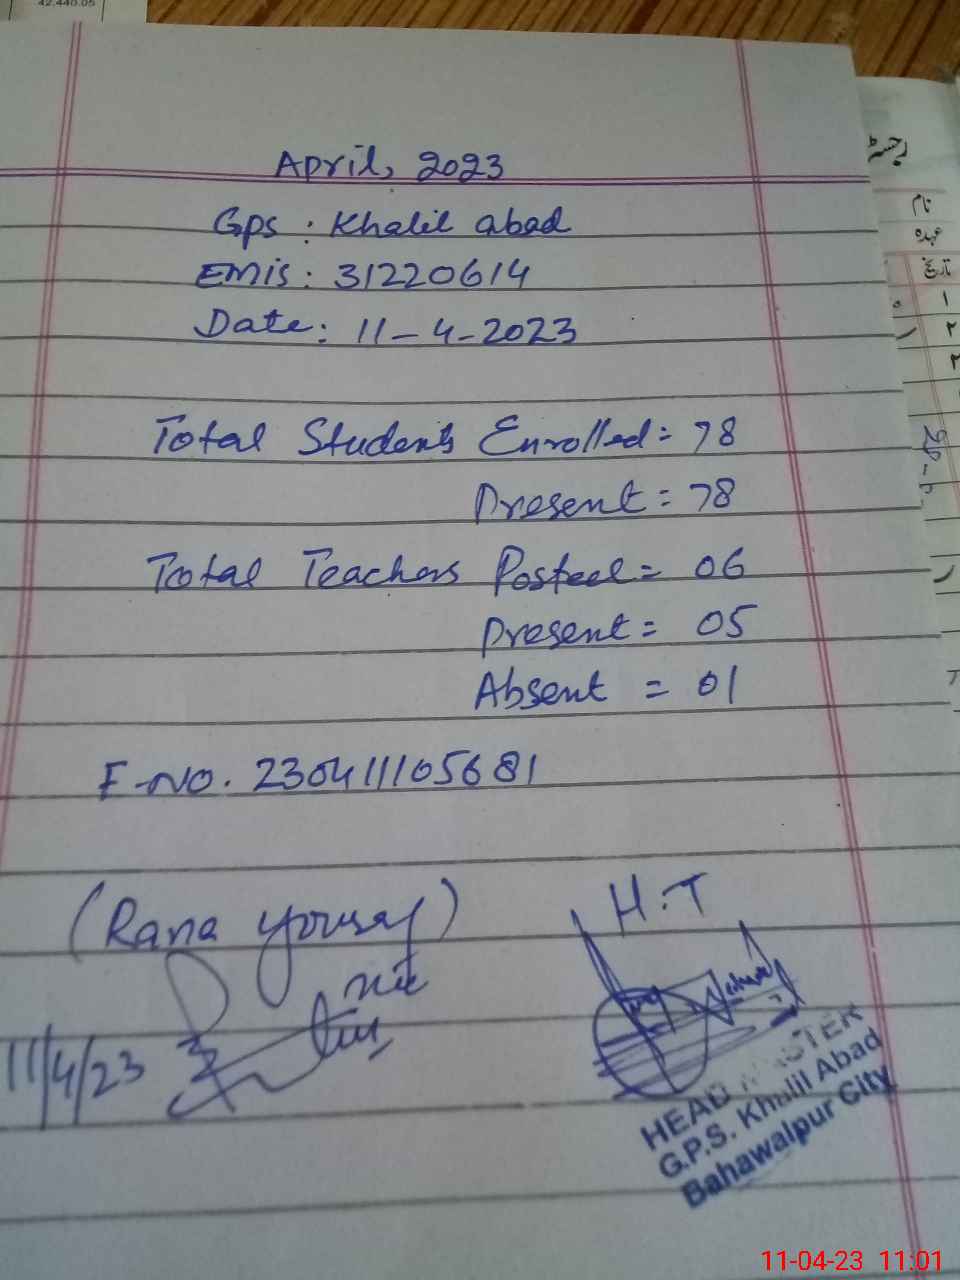 42.440.05
April, 2023
Gps : Khalil abad
EMIS : 31220614
Date : 11-4-2023
Total Students Enrolled = 78
Present = 78
Total Teachers Posted = 06
Present = 05
Absent = 01
F-NO. 230411105681
(Rana Yousaf)
11/4/23
H.T
HEAD MASTER
G.P.S. Khalil Abad
Bahawalpur City
رجسٹر
نام
عہدہ
تاریخ
۱
۲
۳
11-04-23 11:01